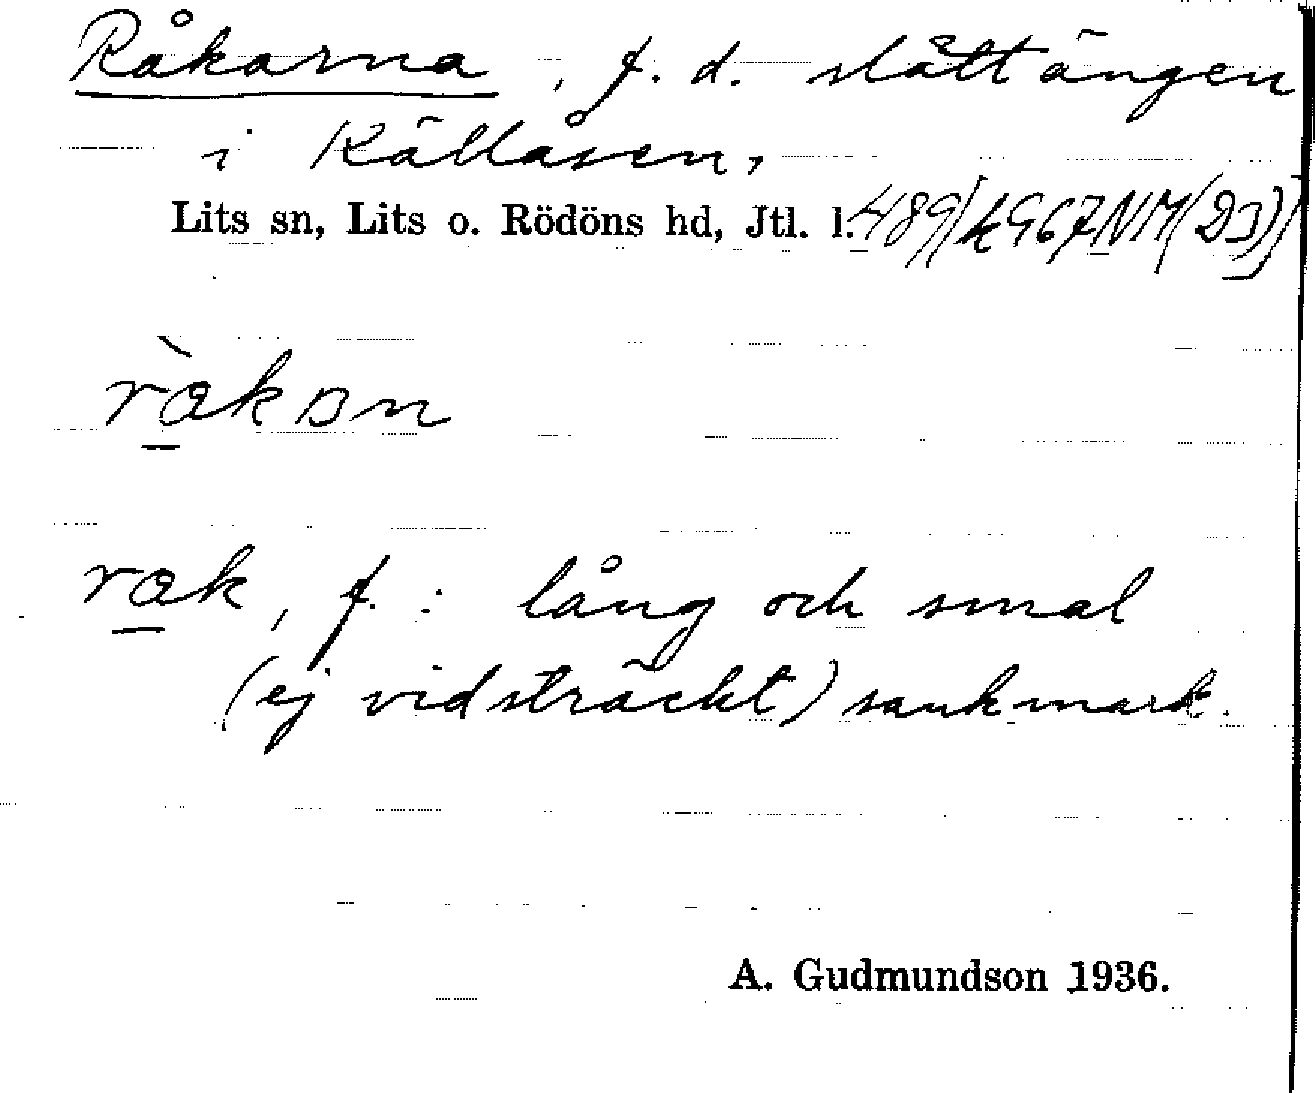 Råkarna, f. d. slåttängen
i Källåsen,
Lits sn, Lits o. Rödöns hd, Jtl. l.
råk, f. : lång och smal
(ej vidsträckt) sankmark.
A. Gudmundson 1936.